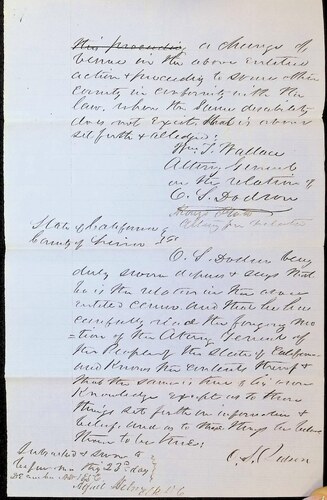 this proceeding a change of
Venue in the above entitled
action & proceeding to some other
County in conformity with the
law, where the same disability
does not exist that is above
set forth & alledged;
Wm T. Wallace
Attorney General
on the relation of
C. S. Dodson
Attorney for Relator
State of California
County of
C. S. Dodson being
duly sworn deposes & says that
he is the relator in the above
entitled cause, and that he has
carefully read the foregoing mo
=tion of the Attorney General of
the People of the State of California
and Knows the contents thereof &
that the same is true of his own
Knowledge except as to those
things set forth on information &
belief, and as to those things he believes
them to be true.
C. S. Dodson
Subscribed & sworn to
before me this 23d day